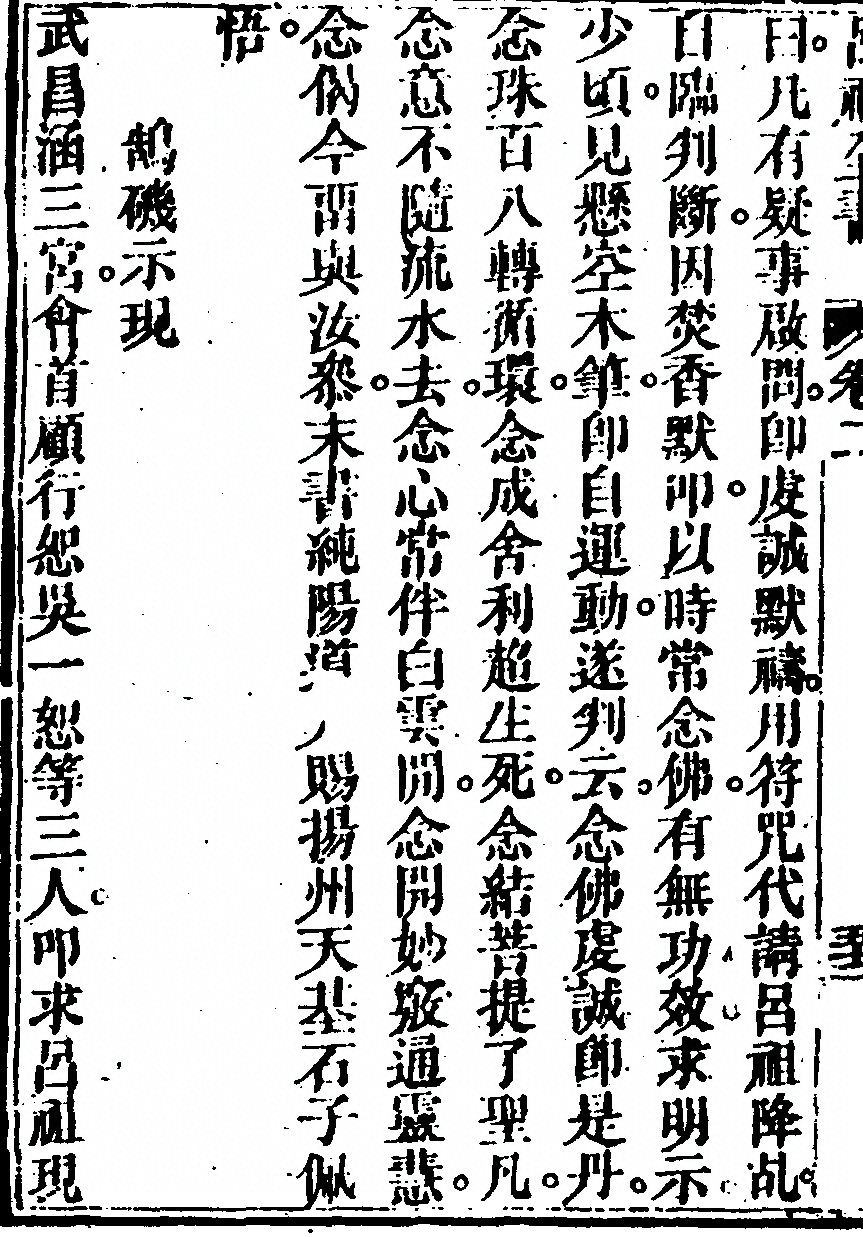 曰凡有疑事啟問卽虔誠默禱用符咒代請呂祖降乩
自臨判斷因焚香默叩以時常念佛有無功效求明示
少頃見懸空木筆卽自運動遂判云念佛虔誠卽是丹
念珠百八轉循環念成舍利超生死念結菩提了聖凡
念意不隨流水去念心常伴白雲閒念開妙竅通靈慧
念偈今留與汝叅末書純陽道人賜揚州天基石子佩
悟
鵠磯示現
武昌涵三宮會首顧行恕吳一恕等三人叩求呂祖現